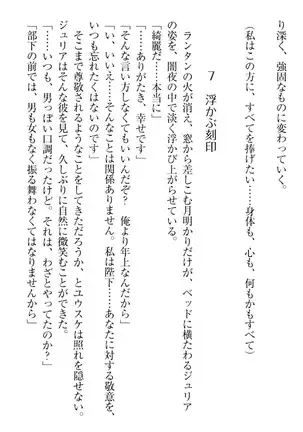 り深く、強固なものに変わっていく。
(私はこの方に、すべてを捧げたい……身体も、心も、何もかもすべて)
7 浮かぶ刻印
ランタンの火が消え、窓から差しこむ月明かりだけが、ベッドに横たわるジュリア
の姿を、闇夜の中で淡く浮かび上がらせている。
「綺麗だ……本当に」
「……ありがたき、幸せです」
「そんな言い方しなくてもいいんだぞ? 俺より年上なんだから」
「い、いいえ……そんなことは関係ありません。私は陛下……あなたに対する敬意を、
いつも忘れたくはないのです」
そこまで尊敬されるようなことをしてきただろうか、とユウスケは照れを隠せない。
ジュリアはそんな彼を見て、久しぶりに自然に微笑むことができた。
「……いつも、男っぽい口調だったけど……それは、わざとやってたのか?」
「部下の前では、男も女もなく振る舞わなくてはなりませんから」